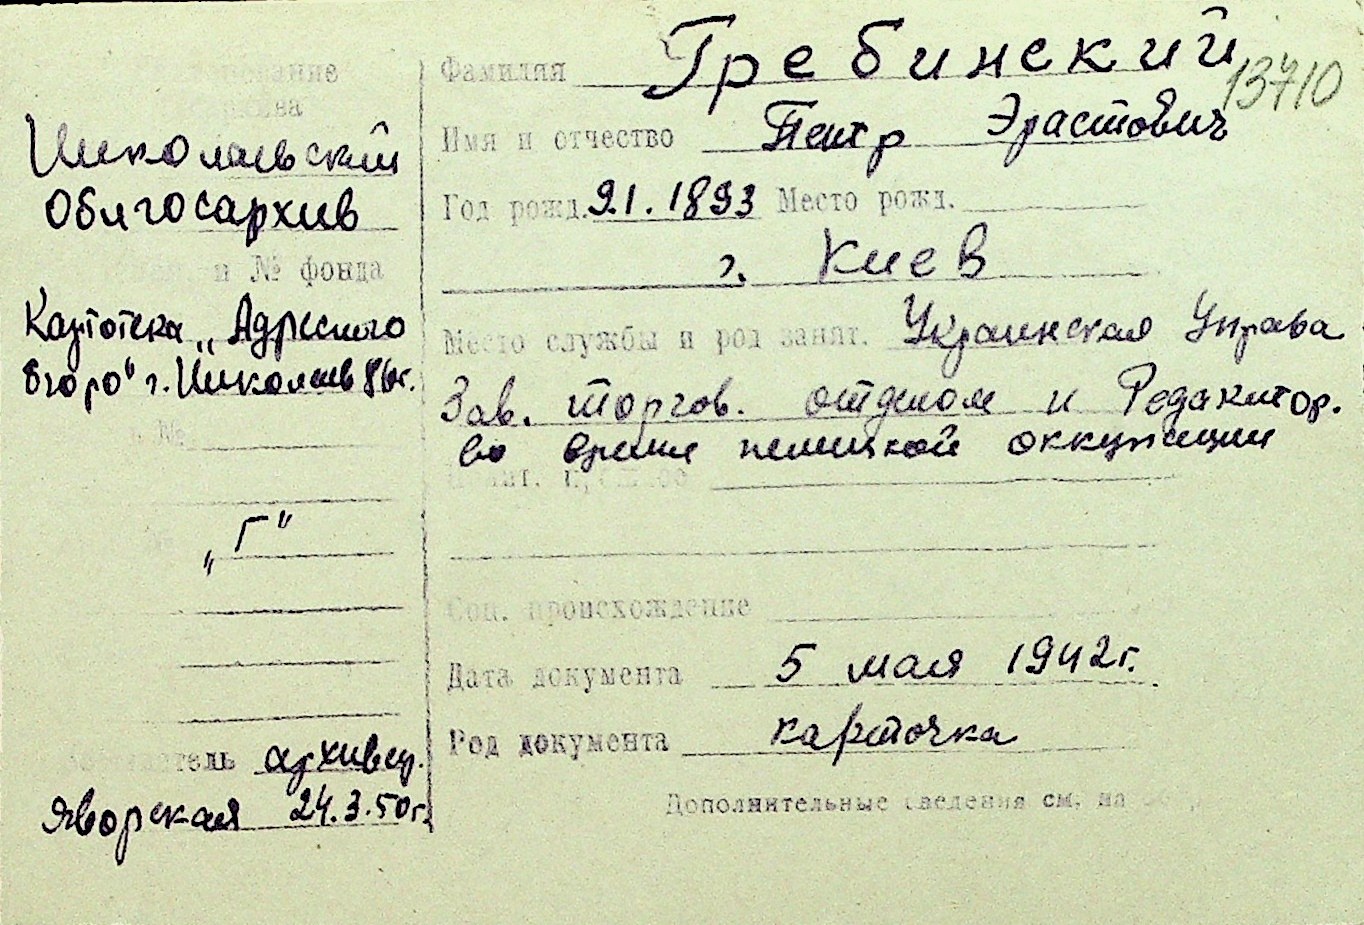 Николаевский
Облгосархив
и № фонда
Картотека „Адресного
бюро" г. Николаев
№
„Г"
архивец.
Яворская 24.3.50г.
Фамилия Гребинский
13710
Имя и отчество Петр Эрастович
Год рожд. 9.1.1893 Место рожд.
г. Киев
Место службы и род занят. Украинская Управа
Зав. торгов. отделом и Редактор.
во время немецкой оккупации
Соц. происхождение
Дата документа 5 мая 1942г.
Род документа карточка
Дополнительные сведения см. на